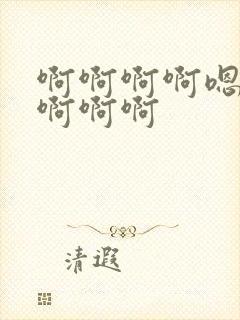 啊啊啊啊嗯
啊啊啊
清遐